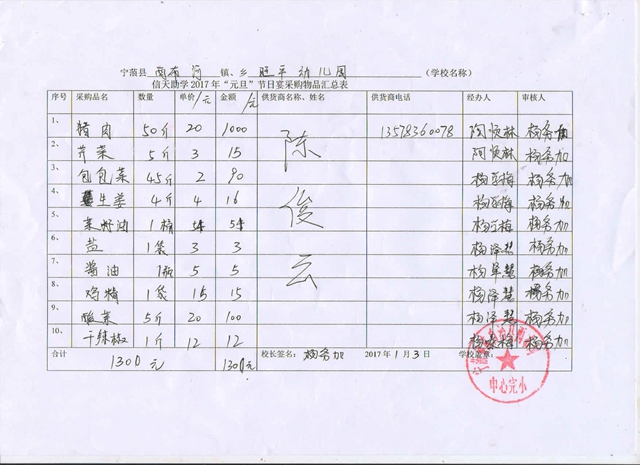 宁蒗县 西布河 镇、乡 旺平幼儿园 (学校名称)
信天助学2017年“元旦”节日宴采购物品汇总表
序号 采购品名 数量 单价/元 金额/元 供货商名称、姓名 供货商电话 经办人 审核人
1、 猪肉 50斤 20 1000 陈俊云 13578360078 杨务加
2、 芹菜 5斤 3 15 杨务加
3、 包包菜 45斤 2 90 杨务加
4、 生姜 4斤 4 16 杨务加
5、 菜籽油 1桶 54 54 杨务加
6、 盐 1袋 3 3 杨泽慧 杨务加
7、 酱油 1瓶 5 5 杨泽慧 杨务加
8、 鸡精 1袋 15 15 杨泽慧 杨务加
9、 酸菜 5斤 20 100 杨泽慧 杨务加
10、 干辣椒 1斤 12 12 杨务加
合计 1300元 1300元 校长签名: 杨务加 2017年1月3日 学校盖章:
中心完小